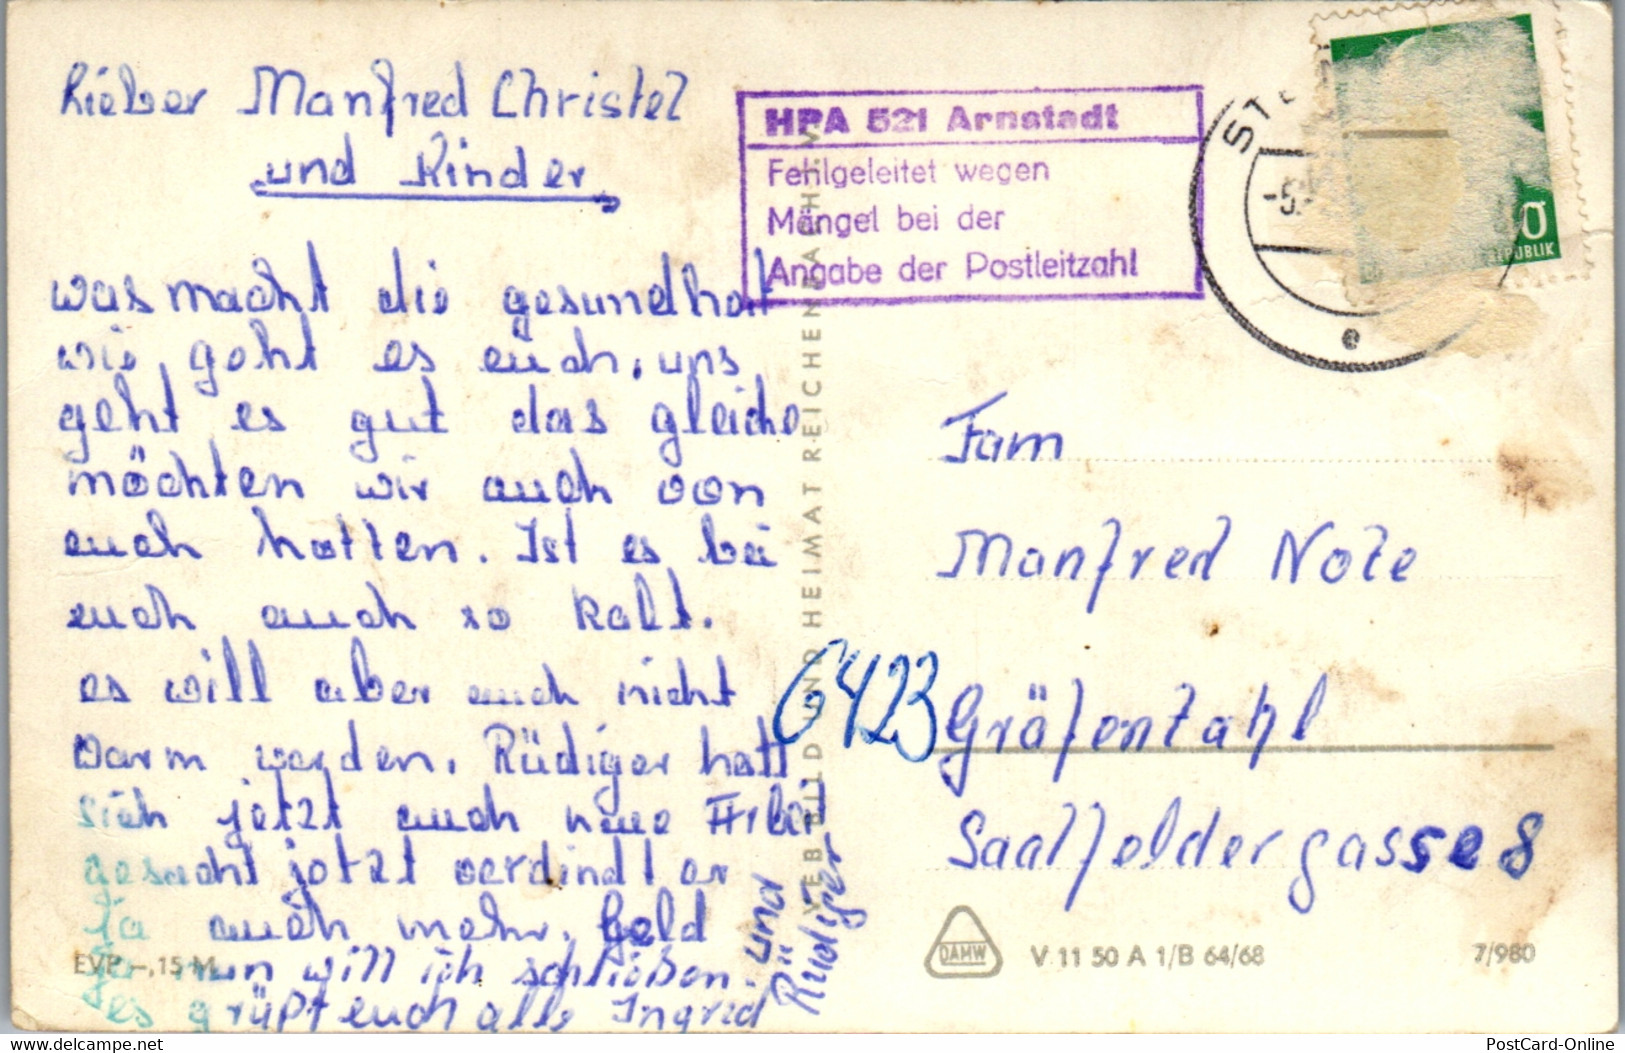 Lieber Manfred Christel
und Kinder
was macht die gesundheit
wie geht es euch, uns
geht es gut das gleiche
möchten wir auch von
euch hatten. Ist es bei
euch auch so kalt.
es will aber auch nicht
warm werden. Rüdiger hatt
sich jetzt auch neue Arbeit
gesucht jetzt verdindt er
ja auch mehr. Geld
so nun will ich schließen.
es grüßt euch alle Ingrid
und
Rüdiger
HPA 521 Arnstadt
Fehlgeleitet wegen
Mängel bei der
Angabe der Postleitzahl
ST
-5.
e
0
PUBLIK
VEB BILD UND HEIMAT REICHENBACH I. V.
Fam
Manfred Note
6423 Gräfentahl
Saalfelder gasse 8
EVP -,15 M
DAMW
V 11 50 A 1/B 64/68
7/980
PostCard-Online